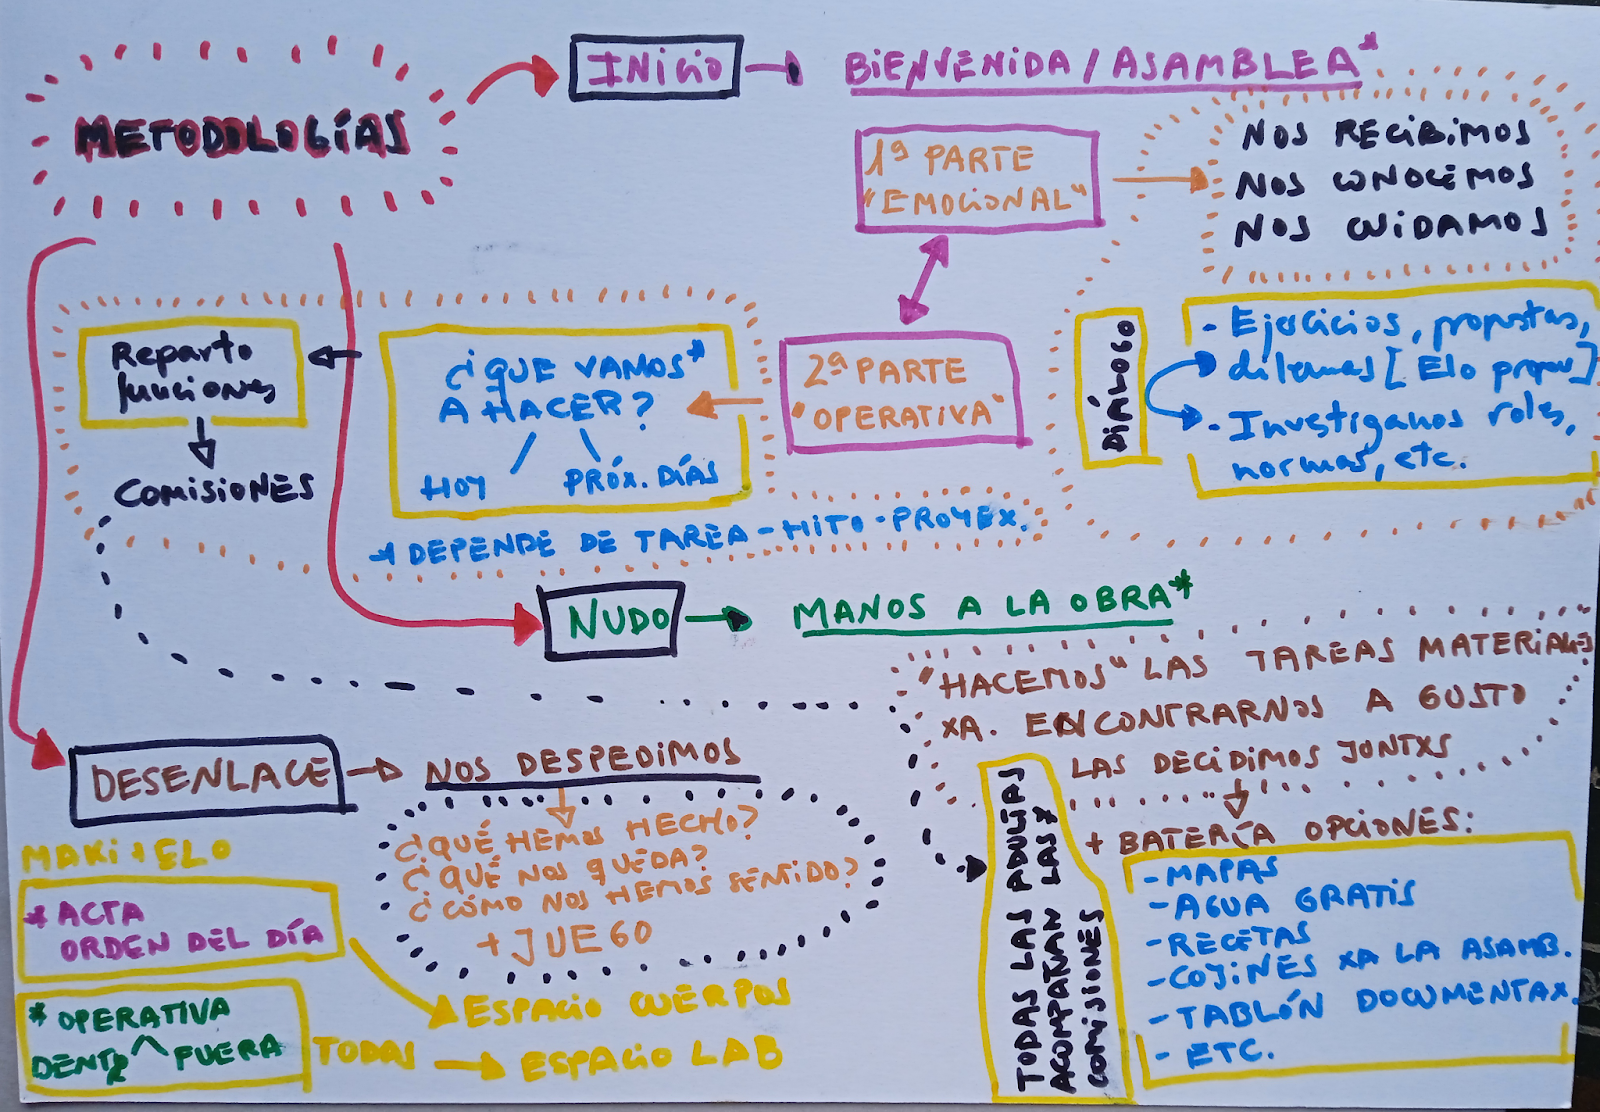 METODOLOGÍAS
INICIO
BIENVENIDA / ASAMBLEA*
1ª PARTE
"EMOCIONAL"
NOS RECIBIMOS
NOS CONOCEMOS
NOS CUIDAMOS
DIÁLOGO
- Ejercicios, propostas,
dilemas [Elo propov]
- Investiganos roles,
normas, etc.
2ª PARTE
"OPERATIVA"
¿QUE VAMOS*
A HACER?
HOY
PRÓX. DÍAS
* DEPENDE DE TAREA - HITO - PROYEX.
Reparto
funciones
COMISIONES
NUDO
MANOS A LA OBRA*
"HACEMOS" LAS TAREAS MATERIALES
XA. ENCONTRARNOS A GUSTO
LAS DECIDIMOS JUNTXS
+ BATERÍA OPCIONES:
- MAPAS
- AGUA GRATIS
- RECETAS
- COJINES XA LA ASAMB.
- TABLÓN DOCUMENTAX.
- ETC.
TODAS LAS ADULTAS
ACOMPAÑAN LAS*
COMISIONES
DESENLACE
NOS DESPEDIMOS
¿QUÉ HEMOS HECHO?
¿QUÉ NOS QUEDA?
¿CÓMO NOS HEMOS SENTIDO?
+ JUEGO
MAKI + ELO
* ACTA
ORDEN DEL DÍA
ESPACIO CUERPOS
* OPERATIVA
DENTR FUERA
TODAS
ESPACIO LAB